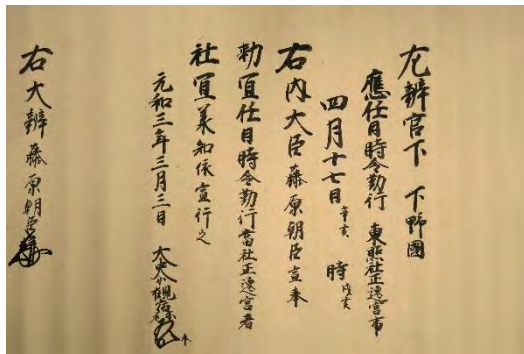 左辨官下　下野國
應任日時令勤行　東照社正遷宮事
四月十七日　時
右内大臣藤原朝臣宣奉
勅宜任日時令勤行當社正遷宮者
社宜承知依宣行之
元和三年三月三日　大史小槻宿祢
右大辨藤原朝臣